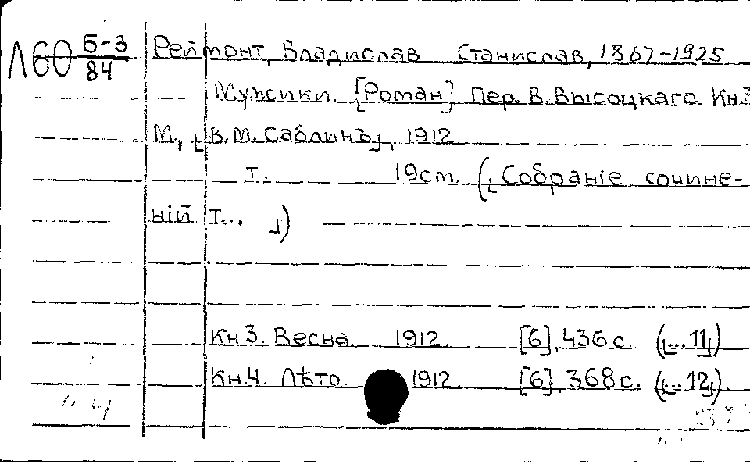 Л60 Б-3/84 Реймонт, Владислав Станислав, 1867-1925
Мужики. [Роман] Пер. В. Высоцкаго. Кн.3
М., [В.М. Саблинъ], 1912
т. 19см. ([Собрание сочине-
ній т... ])
Кн 3. Весна 1912 [6], 436 с. ([...11])
Кн.4. Лѣто. 1912 [6], 368 с. ([...12]).